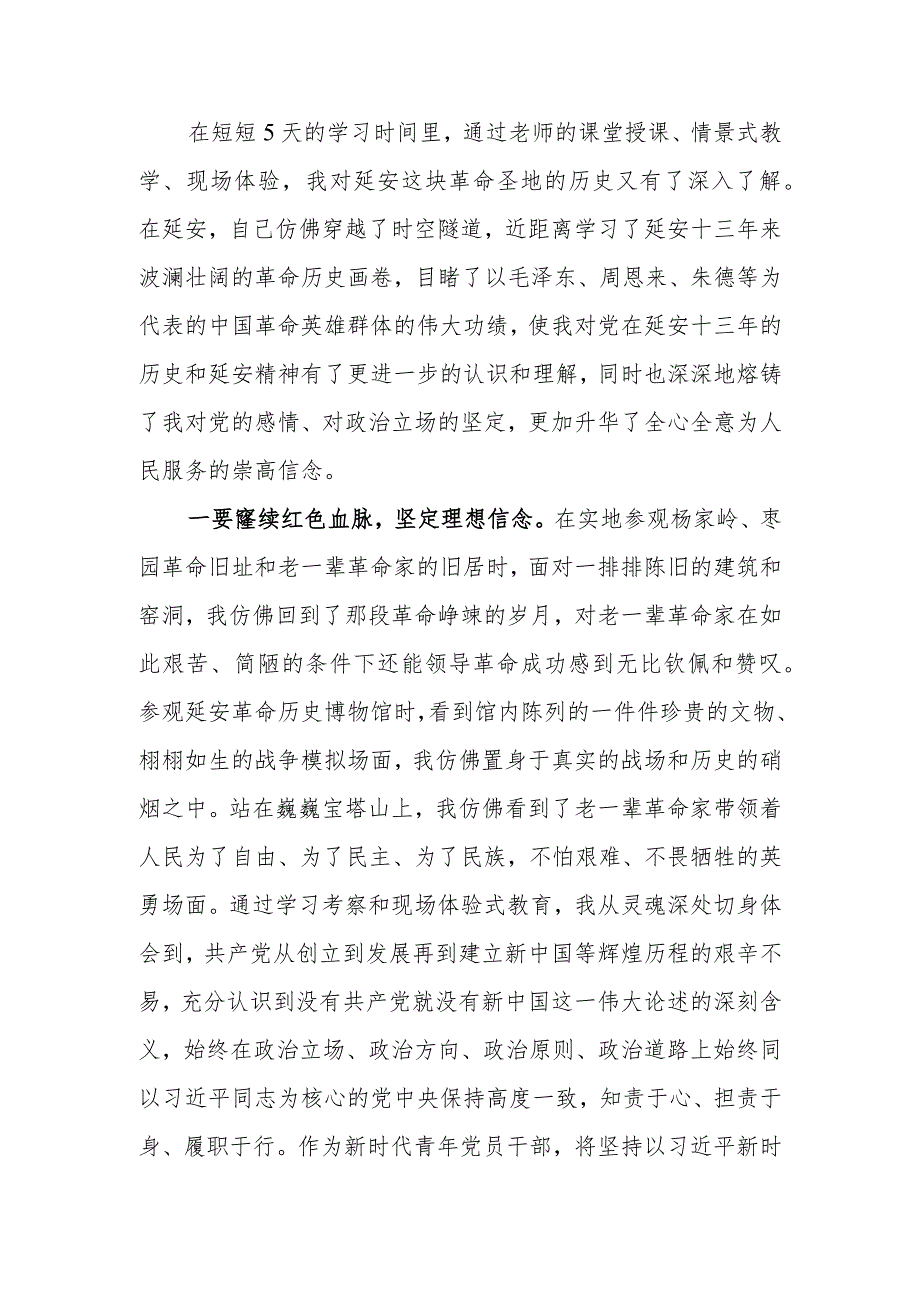 在短短 5 天的学习时间里，通过老师的课堂授课、情景式教
学、现场体验，我对延安这块革命圣地的历史又有了深入了解。
在延安，自己仿佛穿越了时空隧道，近距离学习了延安十三年来
波澜壮阔的革命历史画卷，目睹了以毛泽东、周恩来、朱德等为
代表的中国革命英雄群体的伟大功绩，使我对党在延安十三年的
历史和延安精神有了更进一步的认识和理解，同时也深深地熔铸
了我对党的感情、对政治立场的坚定，更加升华了全心全意为人
民服务的崇高信念。
一要窿续红色血脉，坚定理想信念。在实地参观杨家岭、枣
园革命旧址和老一辈革命家的旧居时，面对一排排陈旧的建筑和
窑洞，我仿佛回到了那段革命峥竦的岁月，对老一辈革命家在如
此艰苦、简陋的条件下还能领导革命成功感到无比钦佩和赞叹。
参观延安革命历史博物馆时，看到馆内陈列的一件件珍贵的文物、
栩栩如生的战争模拟场面，我仿佛置身于真实的战场和历史的硝
烟之中。站在巍巍宝塔山上，我仿佛看到了老一辈革命家带领着
人民为了自由、为了民主、为了民族，不怕艰难、不畏牺牲的英
勇场面。通过学习考察和现场体验式教育，我从灵魂深处切身体
会到，共产党从创立到发展再到建立新中国等辉煌历程的艰辛不
易，充分认识到没有共产党就没有新中国这一伟大论述的深刻含
义，始终在政治立场、政治方向、政治原则、政治道路上始终同
以习近平同志为核心的党中央保持高度一致，知责于心、担责于
身、履职于行。作为新时代青年党员干部，将坚持以习近平新时